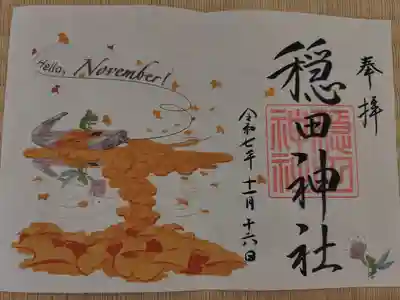 Hello, November!
奉拝
穏田神社
穏田神社
令和七年 十一月 十六日